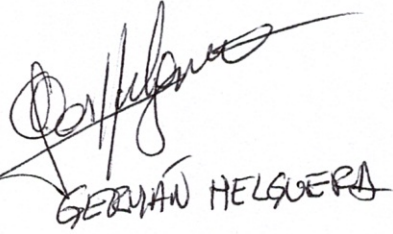 GERMÁN HELGUERA